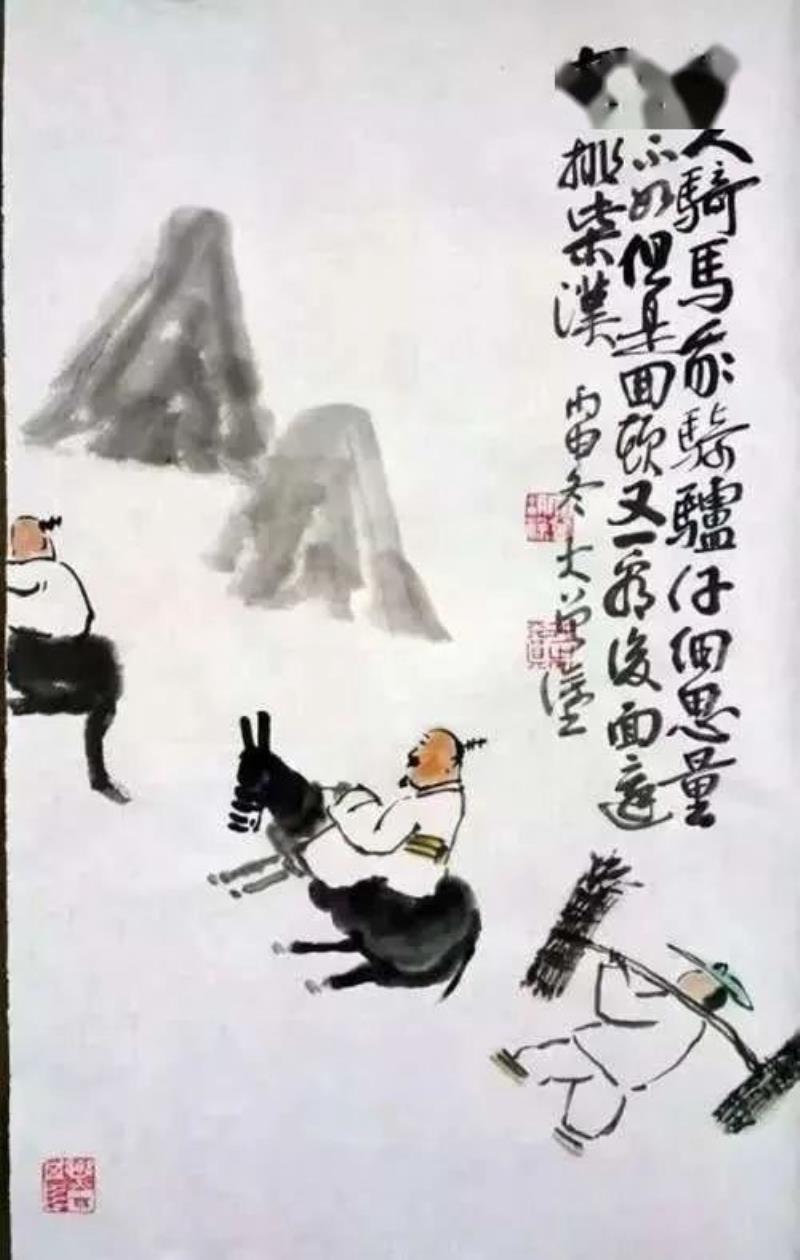 人騎馬我騎驢仔細思量
不如但是回頭又一看後面還
挑柴漢
丙申冬大